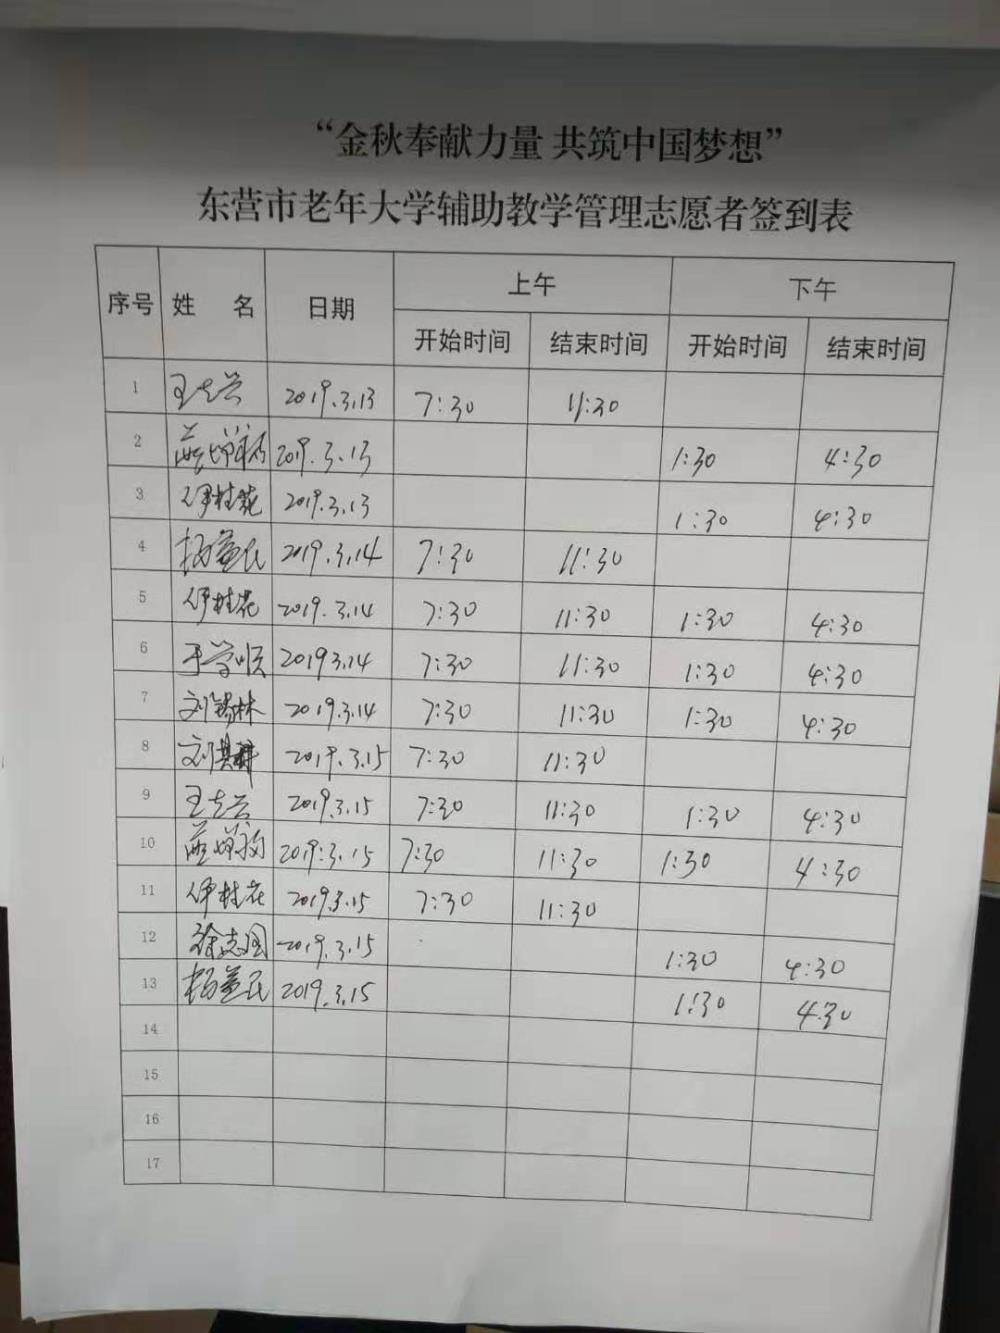 “金秋奉献力量 共筑中国梦想”
东营市老年大学辅助教学管理志愿者签到表
序号 姓 名 日期 上午 下午
开始时间 结束时间 开始时间 结束时间
1 2019.3.13 7:30 11:30
2 2019.3.13 1:30 4:30
3 伊桂花 2019.3.13 1:30 4:30
4 杨益民 2019.3.14 7:30 11:30
5 伊桂花 2019.3.14 7:30 11:30 1:30 4:30
6 于学顺 2019 3.14 7:30 11:30 1:30 4:30
7 刘锡林 2019.3.14 7:30 11:30 1:30 4:30
8 刘其 2019.3.15 7:30 11:30
9 2019.3.15 7:30 11:30 1:30 4:30
10 2019.3.15 7:30 11:30 1:30 4:30
11 伊桂花 2019.3.15 7:30 11:30
12 徐志国 2019.3.15 1:30 4:30
13 杨益民 2019.3.15 1:30 4:30
14
15
16
17